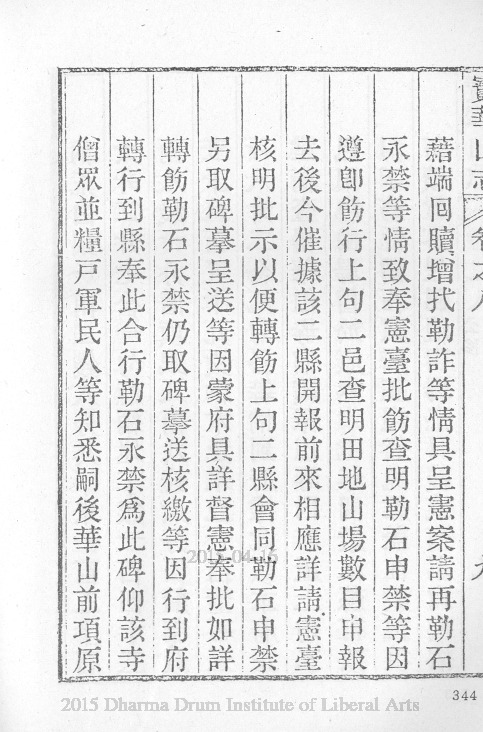 寶華山志 卷之八 九
藉端囘贖增找勒詐等情具呈憲案請再勒石
永禁等情致奉憲臺批飭查明勒石申禁等因
遵卽飭行上句二邑查明田地山場數目申報
去後今催據該二縣開報前來相應詳請憲臺
核明批示以便轉飭上句二縣會同勒石申禁
另取碑摹呈送等因蒙府具詳督憲奉批如詳
轉飭勒石永禁仍取碑摹送核繳等因行到府
轉行到縣奉此合行勒石永禁爲此碑仰該寺
僧眾並糧戸軍民人等知悉嗣後華山前項原
344
2015 Dharma Drum Institute of Liberal Arts